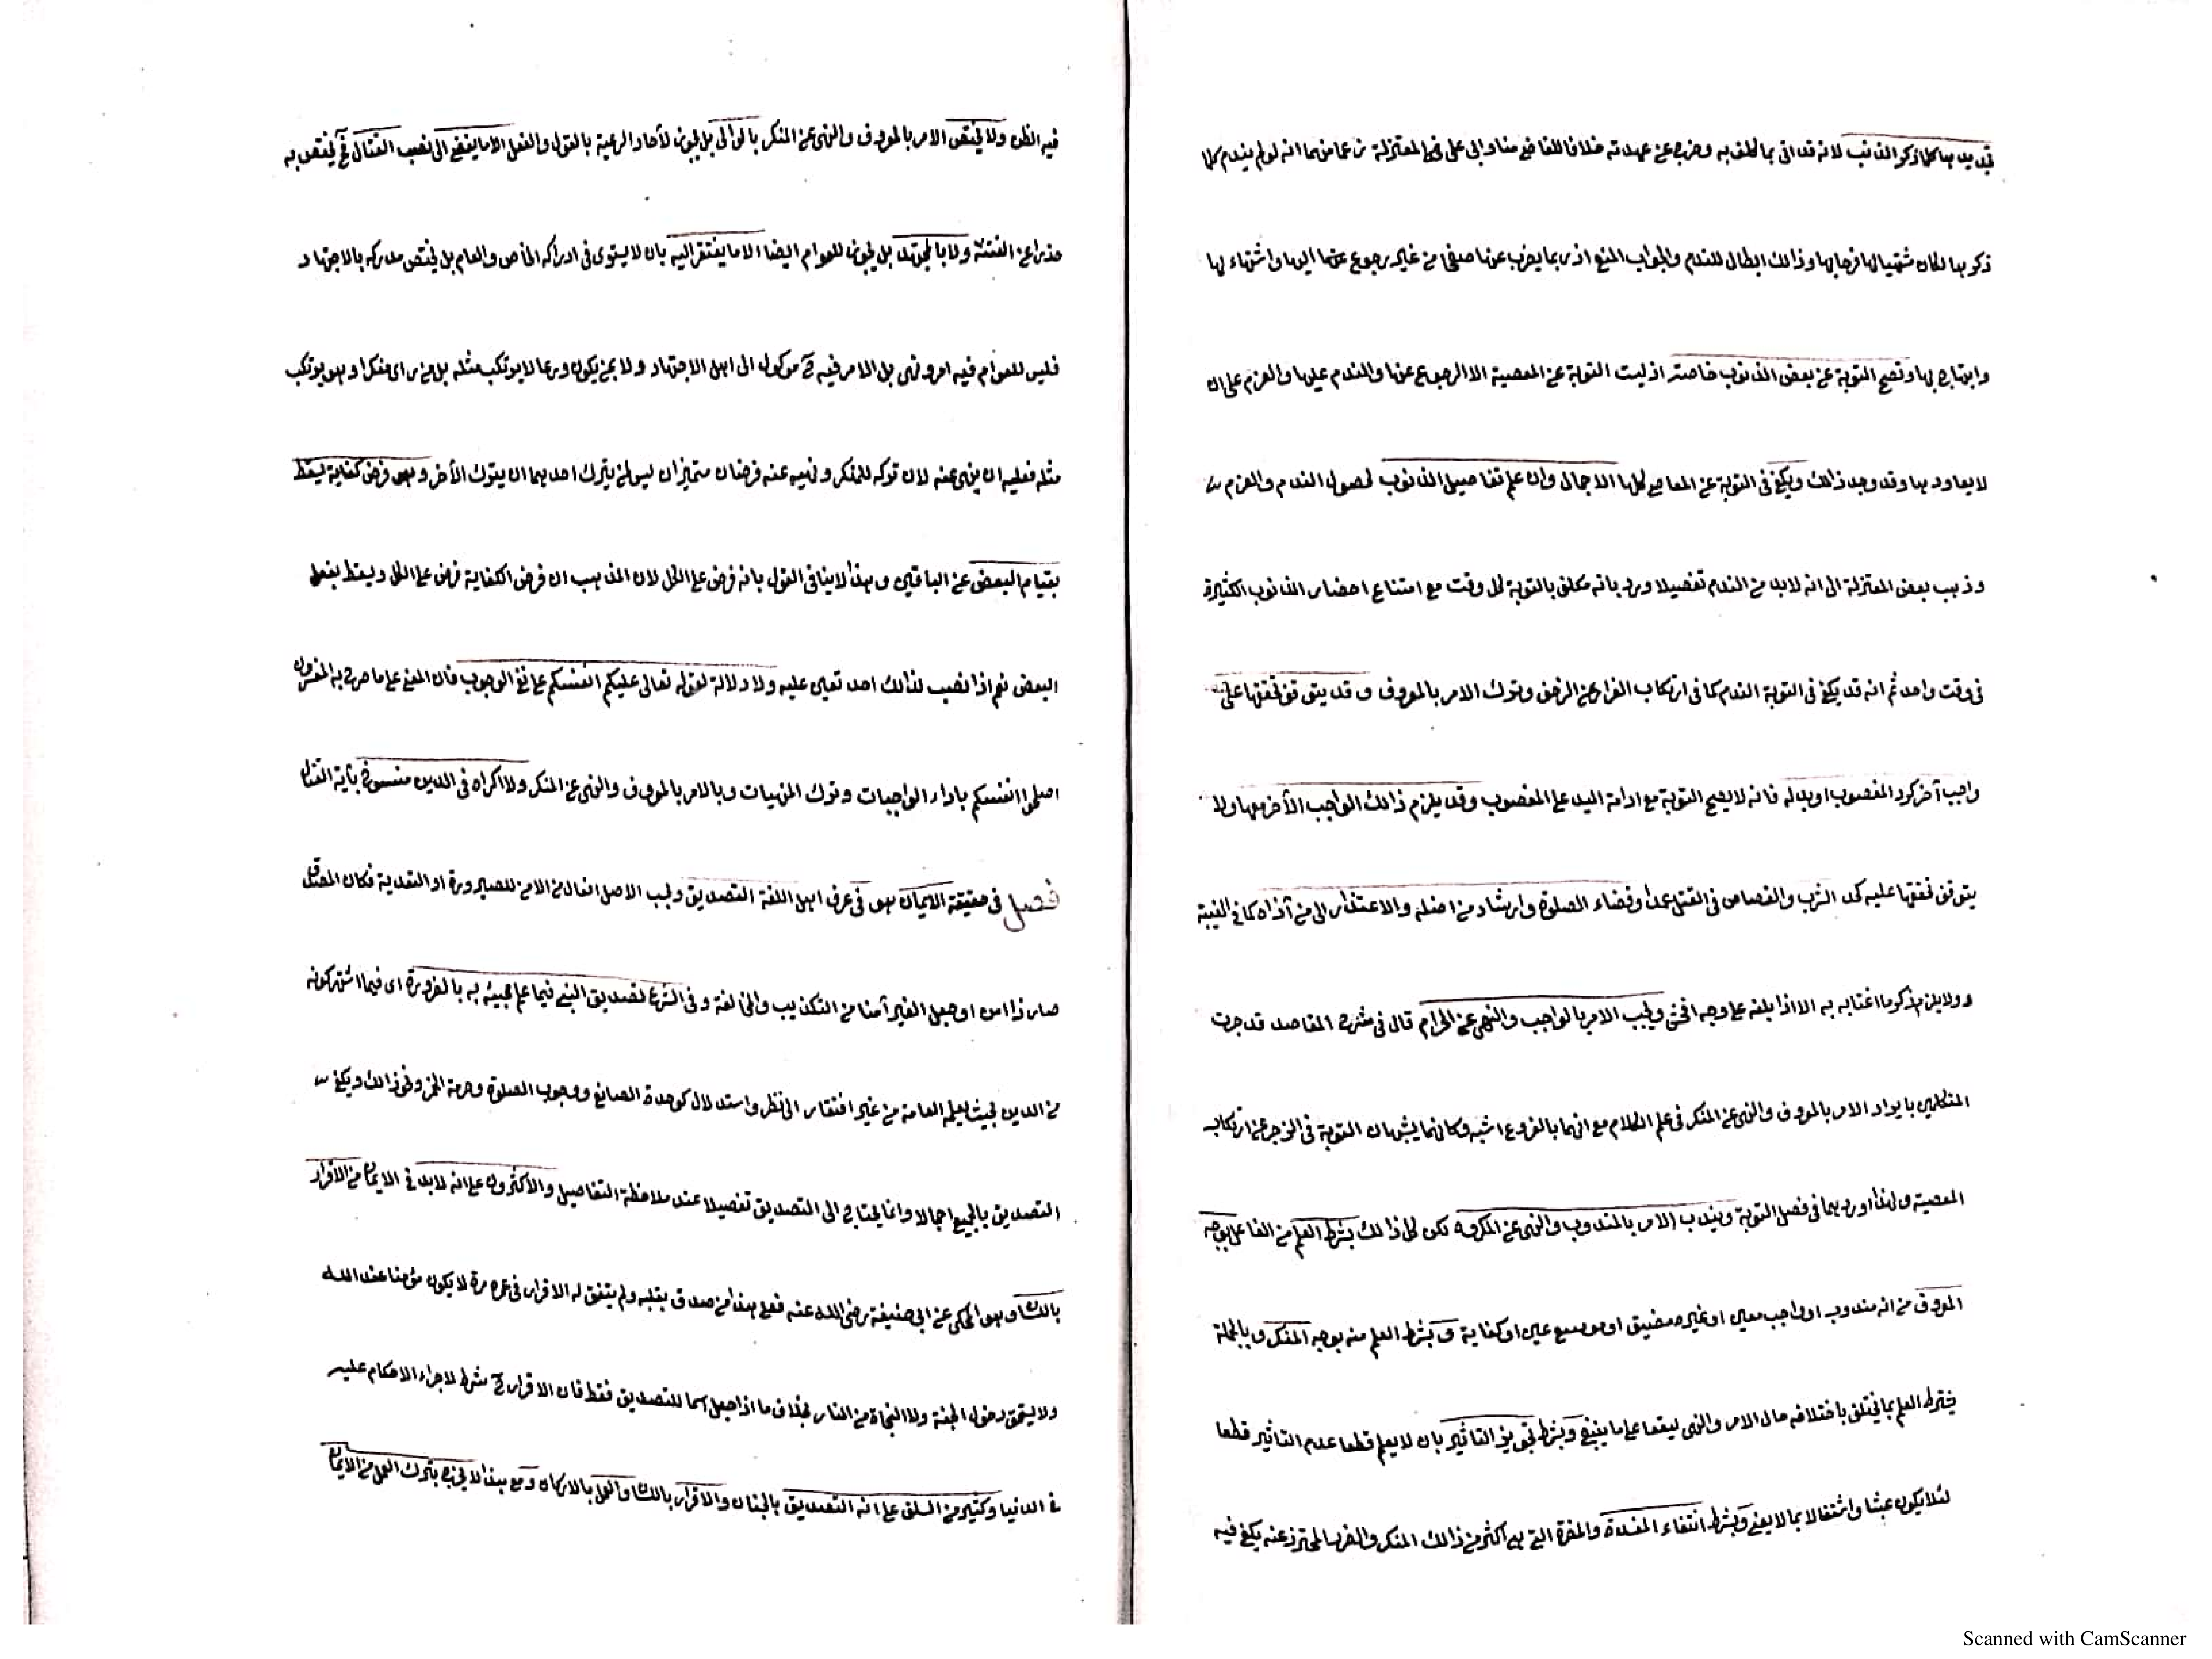 تجديدها كلما ذكر الذنب لانه قد اتى بما كلف به وخرج عن عهدته خلافا للقاضي منا وابي علي من المعتزلة زعما منهما انه لو لم يندم كلما
ذكرها لكان مشتهيا لها فرحا بها وذالك ابطال للندم والجواب المنع اذ ربما يضرب عنها صفحا من غير رجوع عنها اليها واشتهاء لها
وابتهاج بها وتصح التوبة عن بعض الذنوب خاصة اذ ليست التوبة عن المعصية الا الرجوع عنها والندم عليها والعزم على ان
لا يعاود بها وقد وجد ذالك ويكفي في التوبة عن المعاصي كلها الاجمال وان علم تفاصيل الذنوب لحصول الندم والعزم
وذهب بعض المعتزلة الى انه لابد من الندم تفصيلا ورد بانه مكلف بالتوبة كل وقت مع امتناع احضار الذنوب الكثيرة
في وقت واحد ثم انه قد يكفي في التوبة الندم كما في ارتكاب الفرار عن الزحف وترك الامر بالمعروف وقد يتوقف تحققها على
واجب آخر كرد المغصوب او بدله فانه لا يصح التوبة مع ادامة اليد على المغصوب وقد يلزم ذالك الواجب الآخر معها ولا
يتوقف تحققها عليه كحد الشرب والقصاص في القتل عمدا وقضاء الصلوة وارشاد من اضله والاعتذار الى من آذاه كما في الغيبة
ولا يلزم ذكر ما اغتابه به الا اذا بلغه على وجه افحش ويجب الامر بالواجب والنهي عن الحرام قال في شرح المقاصد قد جرت
المتكلمين بايراد الامر بالمعروف والنهي عن المنكر في علم الكلام مع انهما بالفروع اشبه وكانهما يشبهان التوبة في الزجر عن ارتكاب
المعصية ولهذا اوردهما في فصل التوبة ويندب الامر بالمندوب والنهي عن المكروه لكن كل ذالك بشرط العلم من الفاعل بوجه
المعروف من انه مندوب او واجب معين او غيره مضيق او موسع عين او كفاية وبشرط العلم منه بوجه المنكر وبالجملة
يشترط العلم بما يختلف باختلافه حال الامر والنهي ليقعا على ما ينبغي وبشرط تجويز التاثير بان لا يعلم قطعا عدم التاثير قطعا
لئلا يكون عبثا واشتغالا بما لا يعني وبشرط انتفاء المفسدة والمضرة التي هي اكثر من ذالك المنكر والضرر المحترز عنه يكفي فيه
فيه الظن ولا يختص الامر بالمعروف والنهي عن المنكر بالوالي بل يجوز لآحاد الرعية بالقول والفعل الا ما يفضي الى نصب القتال فح يختص به
حذرا عن الفتنة ولا بالمجتهد بل يجوز للعوام ايضا الا ما يفتقر اليه بان لا يستوي في ادراكه الخاص والعام بل يختص مدركه بالاجتهاد
فليس للعوام فيه امر ونهي بل الامر فيه ح موكول الى اهل الاجتهاد ولا بمن يكون ورعا لا يرتكب مثله بل من راى منكرا وهو يرتكب
مثله فعليه ان ينهى عنه لان تركه للمنكر ونهيه عنه فرضان متميزان ليس لمن يترك احدهما ان يترك الآخر وهو فرض كفاية يسقط
بقيام البعض عن الباقين وهذا لا ينافي القول بانه فرض على الكل لان المذهب ان فرض الكفاية فرض على الكل ويسقط بفعل
البعض نعم اذا نصب لذالك احد تعين عليه ولا دلالة لقوله تعالى عليكم انفسكم على نفي الوجوب فان المعنى على ما صرح به المفسرون
اصلحوا انفسكم باداء الواجبات وترك المنهيات وبالامر بالمعروف والنهي عن المنكر ولا اكراه في الدين منسوخ بآية القتال
فصل في حقيقة الايمان هو في عرف اهل اللغة التصديق وبحسب الاصل افعال من الامن للصيرورة او التعدية فكان المصدق
صار ذا امن او جعل الغير آمنا من التكذيب والمخالفة وفي الشرع تصديق النبي فيما علم مجيئه به بالضرورة اى فيما اشتهر كونه
من الدين بحيث يعلمه العامة من غير افتقار الى نظر واستدلال كوحدة الصانع ووجوب الصلوة وحرمة الخمر ونحو ذالك ويكفي
التصديق بالجميع اجمالا وانما يحتاج الى التصديق تفصيلا عند ملاحظة التفاصيل والاكثرون على انه لابد في الايمان من الاقرار
باللسان وهو المحكى عن ابي حنيفة رضي الله عنه فعلى هذا من صدق بقلبه ولم يتفق له الاقرار في عمره مرة لا يكون مؤمنا عند الله
ولا يستحق دخول الجنة ولا النجاة من النار بخلاف ما اذا جعل اسما للتصديق فقط فان الاقرار ح شرط لاجراء الاحكام عليه
في الدنيا وكثير من السلف على انه التصديق بالجنان والاقرار باللسان والعمل بالاركان ومع هذا لا يخرج بترك العمل من الايمان
Scanned with CamScanner